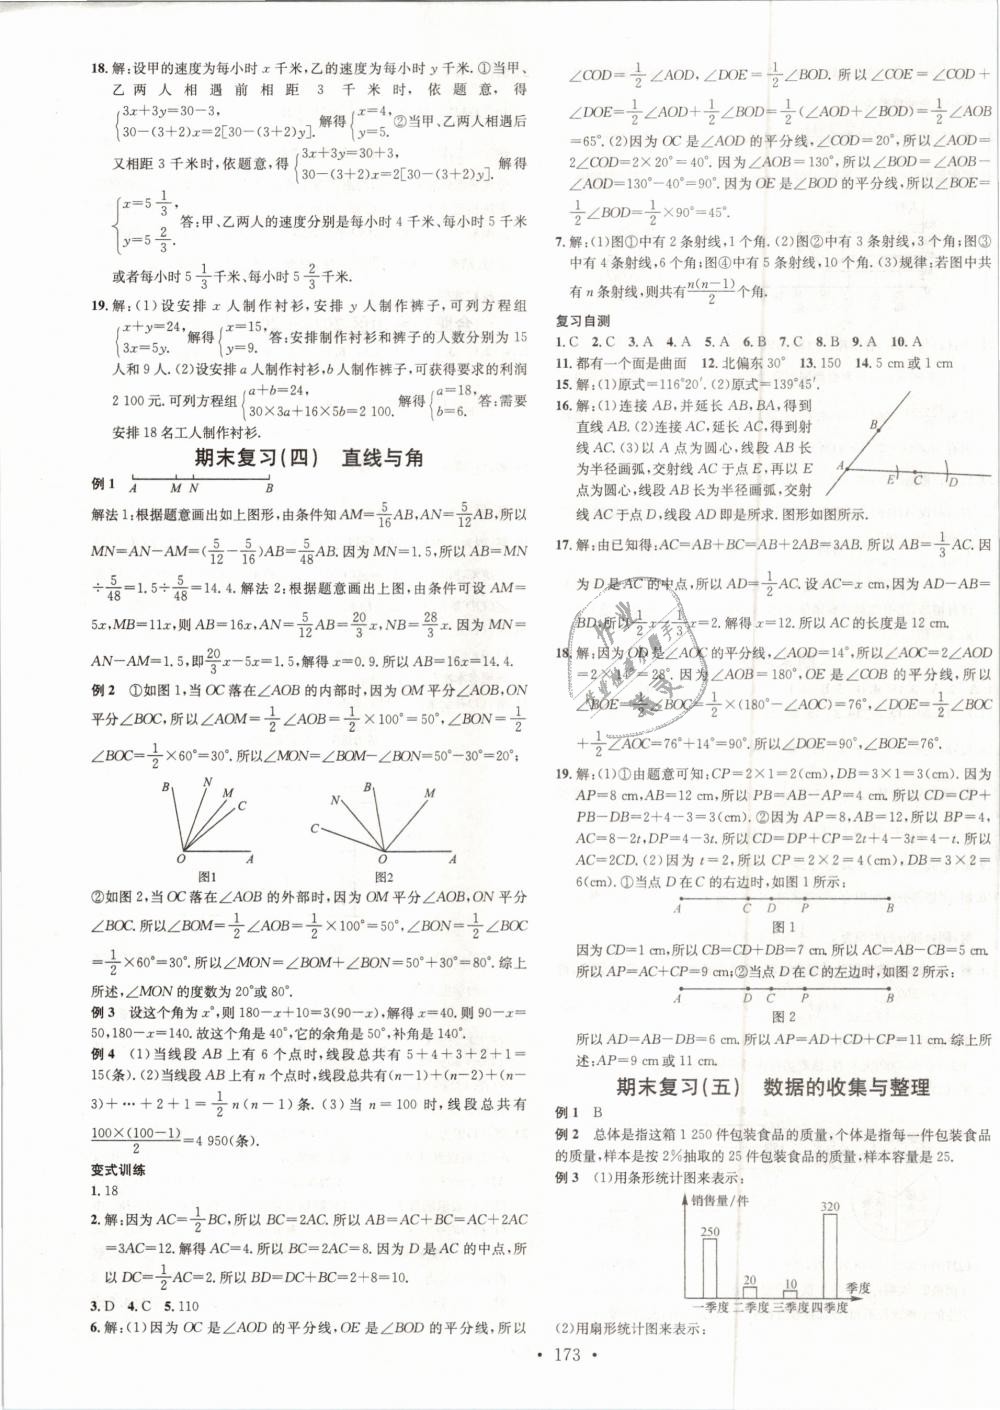 18. 解:设甲的速度为每小时 x 千米,乙的速度为每小时 y 千米. ①当甲、
乙两人相遇前相距 3 千米时, 依题意, 得
{3x+3y=30-3, 30-(3+2)x=2[30-(3+2)y]. 解得{x=4, y=5. ②当甲、乙两人相遇后
又相距 3 千米时,依题意,得{3x+3y=30+3, 30-(3+2)x=2[30-(3+2)y]. 解得
{x=5 1/3, y=5 2/3. 答:甲、乙两人的速度分别是每小时 4 千米、每小时 5 千米
或者每小时 5 1/3 千米、每小时 5 2/3 千米.
19. 解:(1)设安排 x 人制作衬衫,安排 y 人制作裤子,可列方程组
{x+y=24, 3x=5y. 解得{x=15, y=9. 答:安排制作衬衫和裤子的人数分别为 15
人和 9 人. (2)设安排 a 人制作衬衫,b 人制作裤子,可获得要求的利润
2 100 元. 可列方程组{a+b=24, 30×3a+16×5b=2 100. 解得{a=18, b=6. 答:需要
安排 18 名工人制作衬衫.
期末复习(四) 直线与角
例 1
A M N B
解法 1:根据题意画出如上图形,由条件知 AM=5/16AB,AN=5/12AB,所以
MN=AN-AM=(5/12-5/16)AB=5/48AB. 因为 MN=1.5,所以 AB=MN
÷5/48=1.5÷5/48=14.4. 解法 2:根据题意画出上图,由条件可设 AM=
5x,MB=11x,则 AB=16x,AN=5/12AB=20/3x,NB=28/3x. 因为 MN=
AN-AM=1.5,即20/3x-5x=1.5,解得 x=0.9. 所以 AB=16x=14.4.
例 2 ①如图 1,当 OC 落在∠AOB 的内部时,因为 OM 平分∠AOB,ON
平分∠BOC,所以∠AOM=1/2∠AOB=1/2×100°=50°,∠BON=1/2
∠BOC=1/2×60°=30°. 所以∠MON=∠BOM-∠BON=50°-30°=20°;
B N M C O A
图1
B M N C O A
图2
②如图 2,当 OC 落在∠AOB 的外部时,因为 OM 平分∠AOB,ON 平分
∠BOC. 所以∠BOM=1/2∠AOB=1/2×100°=50°,∠BON=1/2∠BOC=
1/2×60°=30°. 所以∠MON=∠BOM+∠BON=50°+30°=80°. 综上
所述,∠MON 的度数为 20°或 80°.
例 3 设这个角为 x°,则 180-x+10=3(90-x),解得 x=40. 则 90-x=
50,180-x=140. 故这个角是 40°,它的余角是 50°,补角是 140°.
例 4 (1)当线段 AB 上有 6 个点时,线段总共有 5+4+3+2+1=
15(条). (2)当线段 AB 上有 n 个点时,线段总共有(n-1)+(n-2)+(n-
3)+…+2+1=1/2n(n-1)条. (3)当 n=100 时,线段总共有
100×(100-1)/2=4 950(条).
变式训练
1. 18
2. 解:因为 AC=1/2BC,所以 BC=2AC. 所以 AB=AC+BC=AC+2AC
=3AC=12. 解得 AC=4. 所以 BC=2AC=8. 因为 D 是 AC 的中点,所
以 DC=1/2AC=2. 所以 BD=DC+BC=2+8=10.
3. D 4. C 5. 110
6. 解:(1)因为 OC 是∠AOD 的平分线,OE 是∠BOD 的平分线,所以
∠COD=1/2∠AOD,∠DOE=1/2∠BOD. 所以∠COE=∠COD+
∠DOE=1/2∠AOD+1/2∠BOD=1/2(∠AOD+∠BOD)=1/2∠AOB
=65°. (2)因为 OC 是∠AOD 的平分线,∠COD=20°,所以∠AOD=
2∠COD=2×20°=40°. 因为∠AOB=130°,所以∠BOD=∠AOB-
∠AOD=130°-40°=90°. 因为 OE 是∠BOD 的平分线,所以∠BOE=
1/2∠BOD=1/2×90°=45°.
7. 解:(1)图①中有 2 条射线,1 个角. (2)图②中有 3 条射线,3 个角;图③
中有 4 条射线,6 个角;图④中有 5 条射线,10 个角. (3)规律:若图中共
有 n 条射线,则共有n(n-1)/2个角.
复习自测
1. C 2. C 3. A 4. A 5. A 6. B 7. C 8. B 9. A 10. A
11. 都有一个面是曲面 12. 北偏东 30° 13. 150 14. 5 cm 或 1 cm
15. 解:(1)原式=116°20′. (2)原式=139°45′.
16. 解:(1)连接 AB,并延长 AB,BA,得到
直线 AB. (2)连接 AC,延长 AC,得到射
线 AC. (3)以 A 点为圆心,线段 AB 长
为半径画弧,交射线 AC 于点 E,再以 E
点为圆心,线段 AB 长为半径画弧,交射
线 AC 于点 D,线段 AD 即是所求. 图形如图所示.
B A E C D
17. 解:由已知得:AC=AB+BC=AB+2AB=3AB. 所以 AB=1/3AC. 因
为 D 是 AC 的中点,所以 AD=1/2AC. 设 AC=x cm,因为 AD-AB=
BD,所以1/2x-1/3x=2. 解得 x=12. 所以 AC 的长度是 12 cm.
18. 解:因为 OD 是∠AOC 的平分线,∠AOD=14°,所以∠AOC=2∠AOD
=2×14°=28°. 因为∠AOB=180°,OE 是∠COB 的平分线,所以
∠BOE=1/2∠BOC=1/2×(180°-∠AOC)=76°. ∠DOE=1/2∠BOC
+1/2∠AOC=76°+14°=90°. 所以∠DOE=90°,∠BOE=76°.
19. 解:(1)①由题意可知:CP=2×1=2(cm),DB=3×1=3(cm). 因为
AP=8 cm,AB=12 cm,所以 PB=AB-AP=4 cm. 所以 CD=CP+
PB-DB=2+4-3=3(cm). ②因为 AP=8,AB=12,所以 BP=4,
AC=8-2t,DP=4-3t. 所以 CD=DP+CP=2t+4-3t=4-t. 所以
AC=2CD. (2)因为 t=2,所以 CP=2×2=4(cm),DB=3×2=
6(cm). ①当点 D 在 C 的右边时,如图 1 所示:
A C D P B
图 1
因为 CD=1 cm,所以 CB=CD+DB=7 cm. 所以 AC=AB-CB=5 cm.
所以 AP=AC+CP=9 cm;②当点 D 在 C 的左边时,如图 2 所示:
A D C P B
图 2
所以 AD=AB-DB=6 cm. 所以 AP=AD+CD+CP=11 cm. 综上所
述:AP=9 cm 或 11 cm.
期末复习(五) 数据的收集与整理
例 1 B
例 2 总体是指这箱 1 250 件包装食品的质量,个体是指每一件包装食品
的质量,样本是按 2%抽取的 25 件包装食品的质量,样本容量是 25.
例 3 (1)用条形统计图来表示:
销售量/件
250 20 10 320
季度
一季度 二季度 三季度 四季度
(2)用扇形统计图来表示:
• 173 •
作业